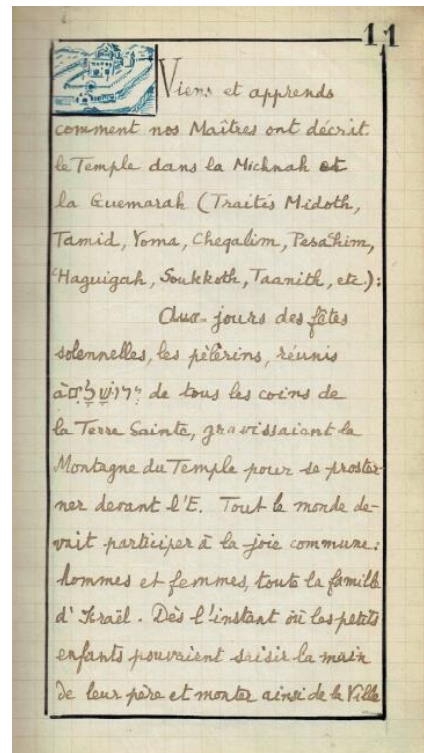 11
Viens et apprends
comment nos Maîtres ont décrit
le Temple dans la Michnah et
la Guemarah (Traités Midoth,
Tamid, Yoma, Cheqalim, Pesa'him,
'Haguigah, Soukkoth, Taanith, etc.):
Aux jours des fêtes
solennelles, les pèlerins, réunis
à יְרוּשָׁלַיִם de tous les coins de
la Terre Sainte, gravissaient la
Montagne du Temple pour se proster-
ner devant l'E. Tout le monde de-
vait participer à la joie commune:
hommes et femmes, toute la famille
d'Israël. Dès l'instant où les petits
enfants pouvaient saisir la main
de leur père et monter ainsi de la Ville